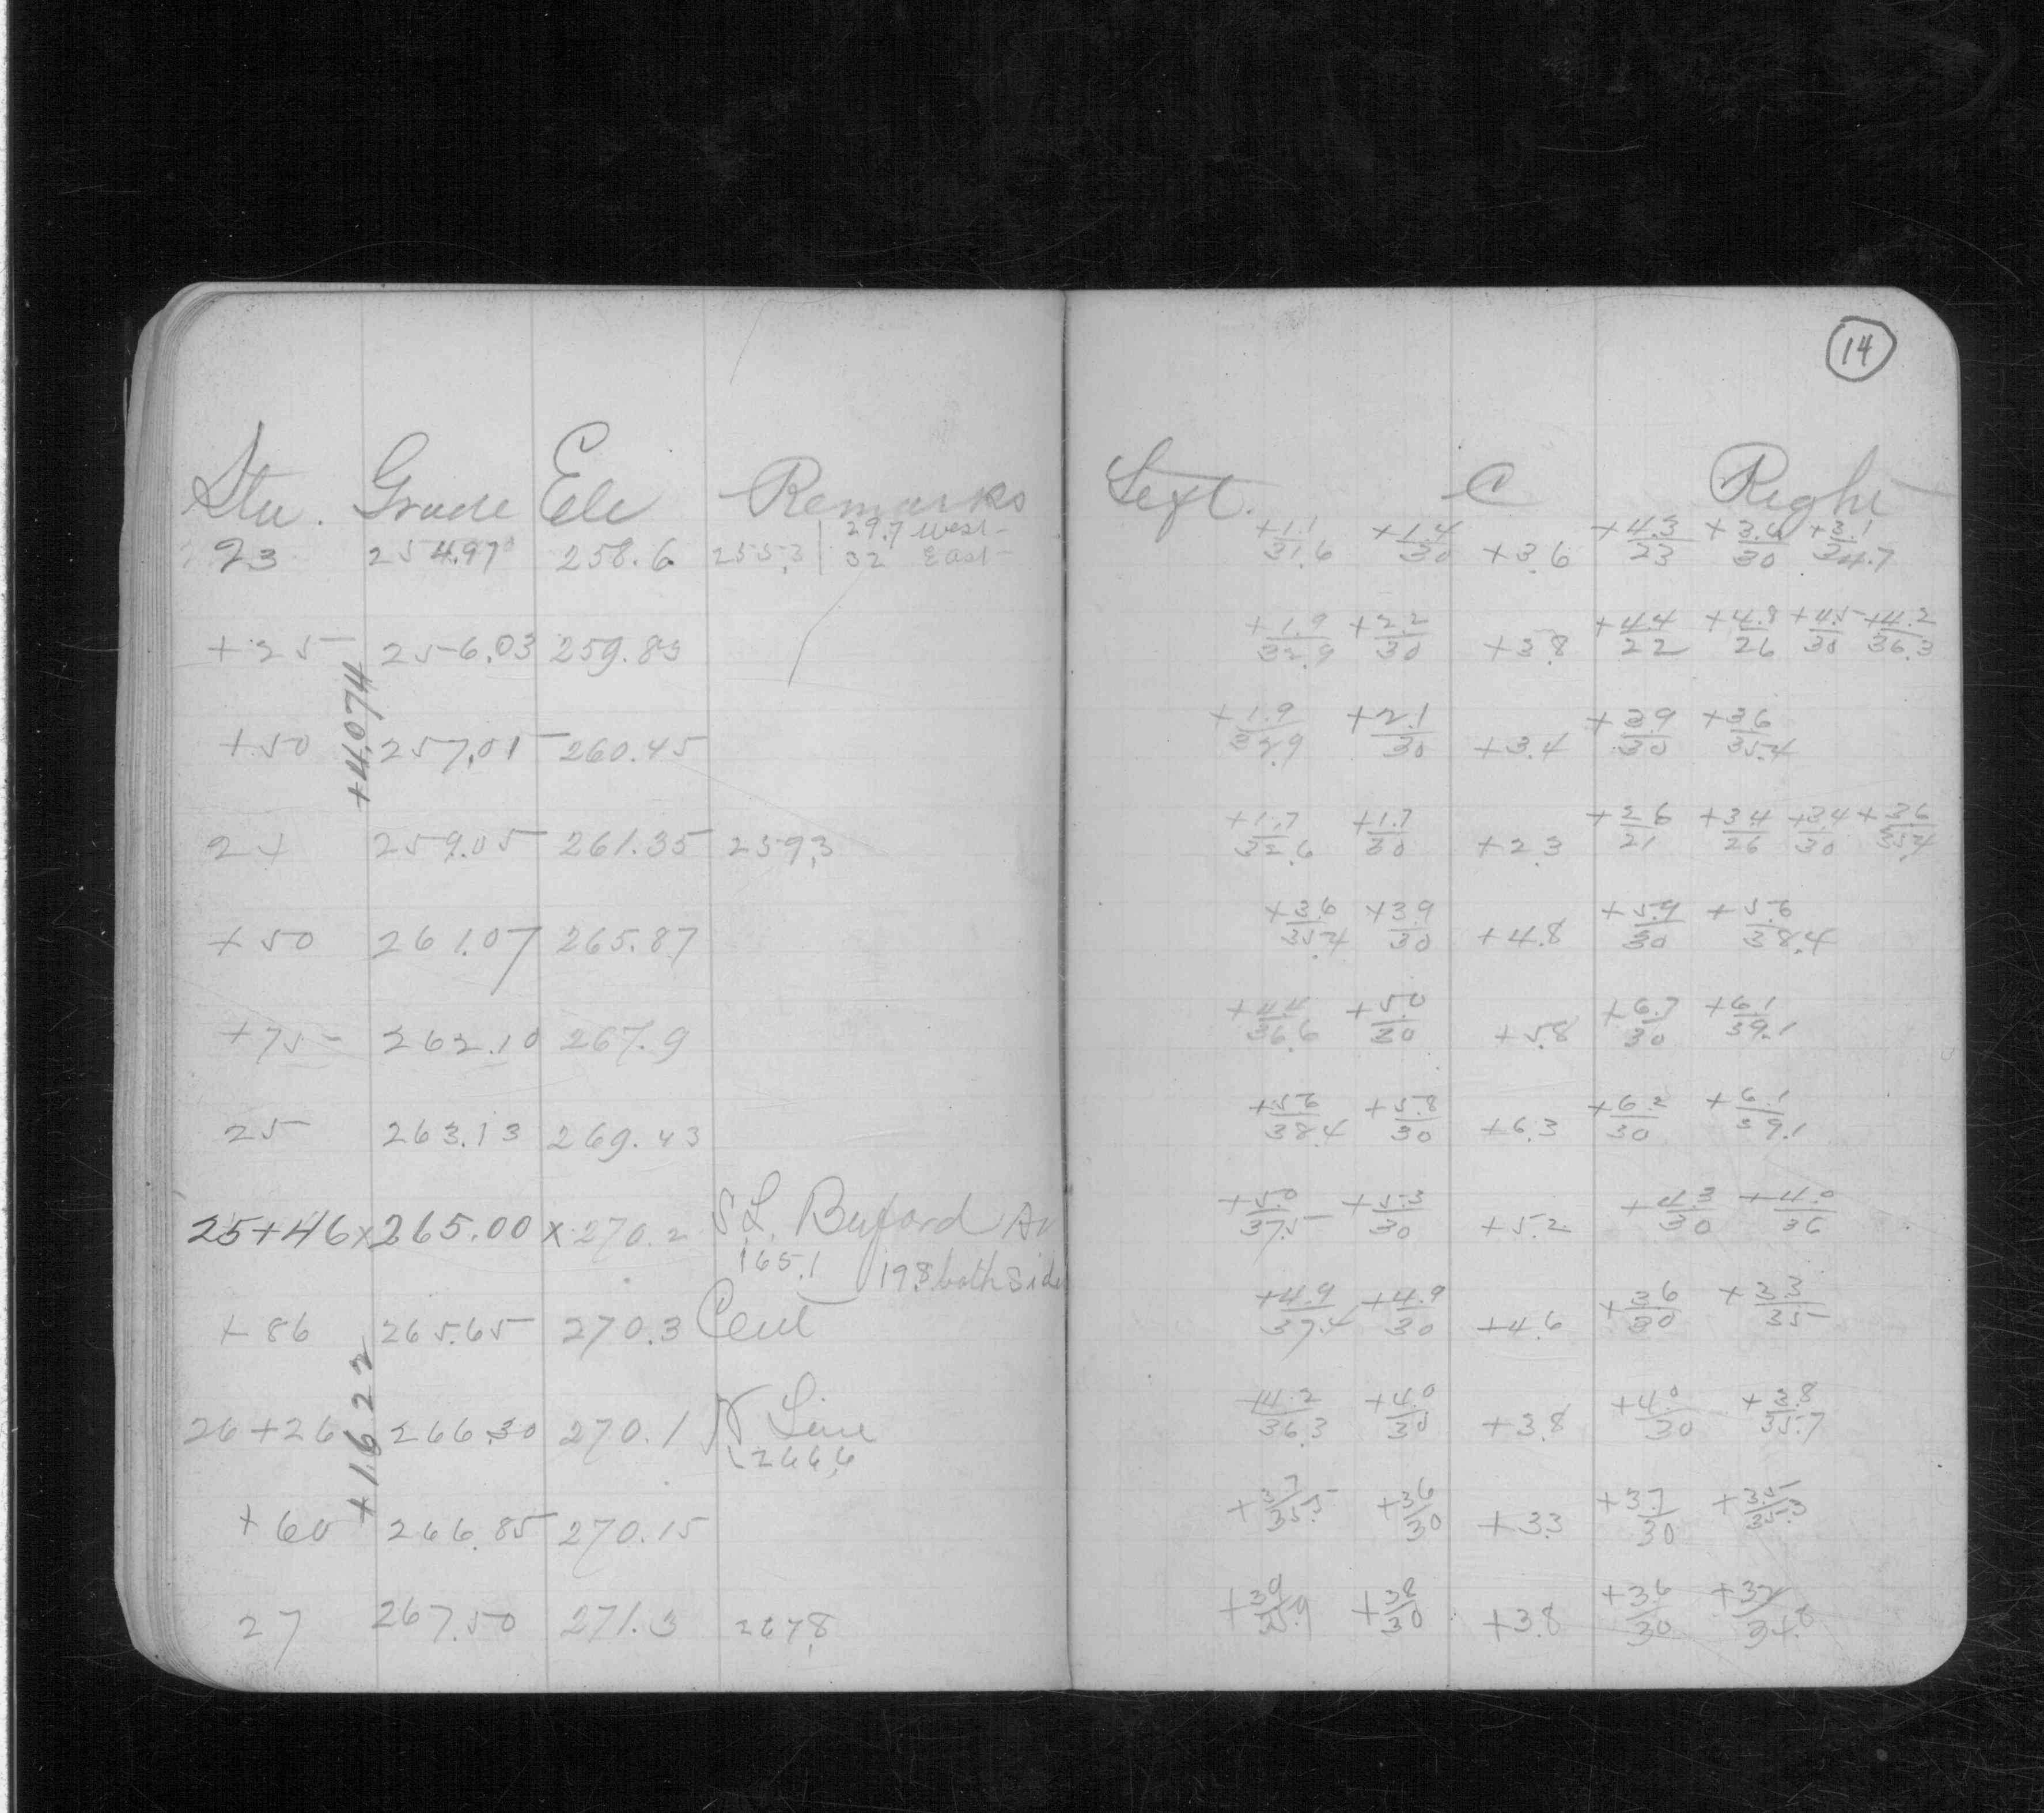 14
Sta. Grade Ele Remarks Left. C Right
23 254.97 258.6 255.3 29.7 West 32 East +1.1/31.6 +1.4/30 +3.6 +4.3/23 +3.4/30 +3.1/34.7
+25 256.03 259.83 +1.9/32.9 +2.2/30 +3.8 +4.4/22 +4.8/26 +4.5/30 +4.2/36.3
+4.074
+50 257.01 260.45 +1.9/32.9 +2.1/30 +3.4 +3.9/30 +3.6/35.4
24 259.05 261.35 259.3 +1.7/32.6 +1.7/30 +2.3 +2.6/21 +3.4/26 +3.4/30 +3.6/35.4
+50 261.07 265.87 +3.6/35.4 +3.9/30 +4.8 +5.9/30 +5.6/38.4
+75 262.10 267.9 +4.4/36.6 +5.0/30 +5.8 +6.7/30 +6.1/39.1
25 263.13 269.43 +5.6/38.4 +5.8/30 +6.3 +6.2/30 +6.1/39.1
25+46 x 265.00 x 270.2 S.L. Buford Av +5.0/37.5 +5.3/30 +5.2 +4.3/30 +4.0/36
165.1 19.8 both side
+86 265.65 270.3 Cent +4.9/37.4 +4.9/30 +4.6 +3.6/30 +3.3/35
+1.622
26+26 266.30 270.1 N Line +4.2/36.3 +4.0/30 +3.8 +4.0/30 +3.8/35.7
266.6
+60 266.85 270.15 +3.7/35.5 +3.6/30 +3.3 +3.7/30 +3.5/35.3
27 267.50 271.3 267.8 +3.9/35.9 +3.8/30 +3.8 +3.6/30 +3.2/34.8